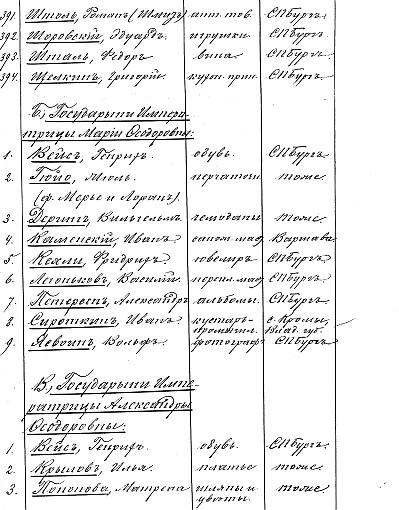 391. Штоль, Романъ (Шмузъ) апт. тов. СПбургъ.
392. Шоровскій, Эдуардъ игрушки. СПбургъ.
393. Шталь, Ѳедоръ вина СПбургъ.
394. Щелкинъ, Григорій. кухон. прин. СПбургъ.
Б., Государыни Импера-
трицы Маріи Ѳеодоровны:
1. Вейсъ, Генрихъ обувь. СПбургъ.
2. Гюйо, перчатки. тоже
(ф. Мерье и Лоранъ).
3. Дерингъ, Вильгельмъ. чемоданы тоже
4. Каменскій, Иванъ сапож. маст. Варшава.
5. Кехли, Фридрихъ ювелиръ СПбургъ
6. Леоньковъ, Василій. перепл. маст. СПбургъ.
7. Петерсенъ, Александръ альбомы. СПбургъ.
8. Сироткинъ, Иванъ кустарь- с. Кромы,
промышл. Влад. губ.
9. Яевоинъ, Вольфъ. фотографъ СПбургъ
В., Государыни Импе-
ратрицы Александры
Ѳеодоровны:
1. Вейсъ, Генрихъ. обувь. СПбургъ.
2. Крыловъ, Илья. платье тоже
3. Попонова, Матрена шляпы и тоже
цвѣты.